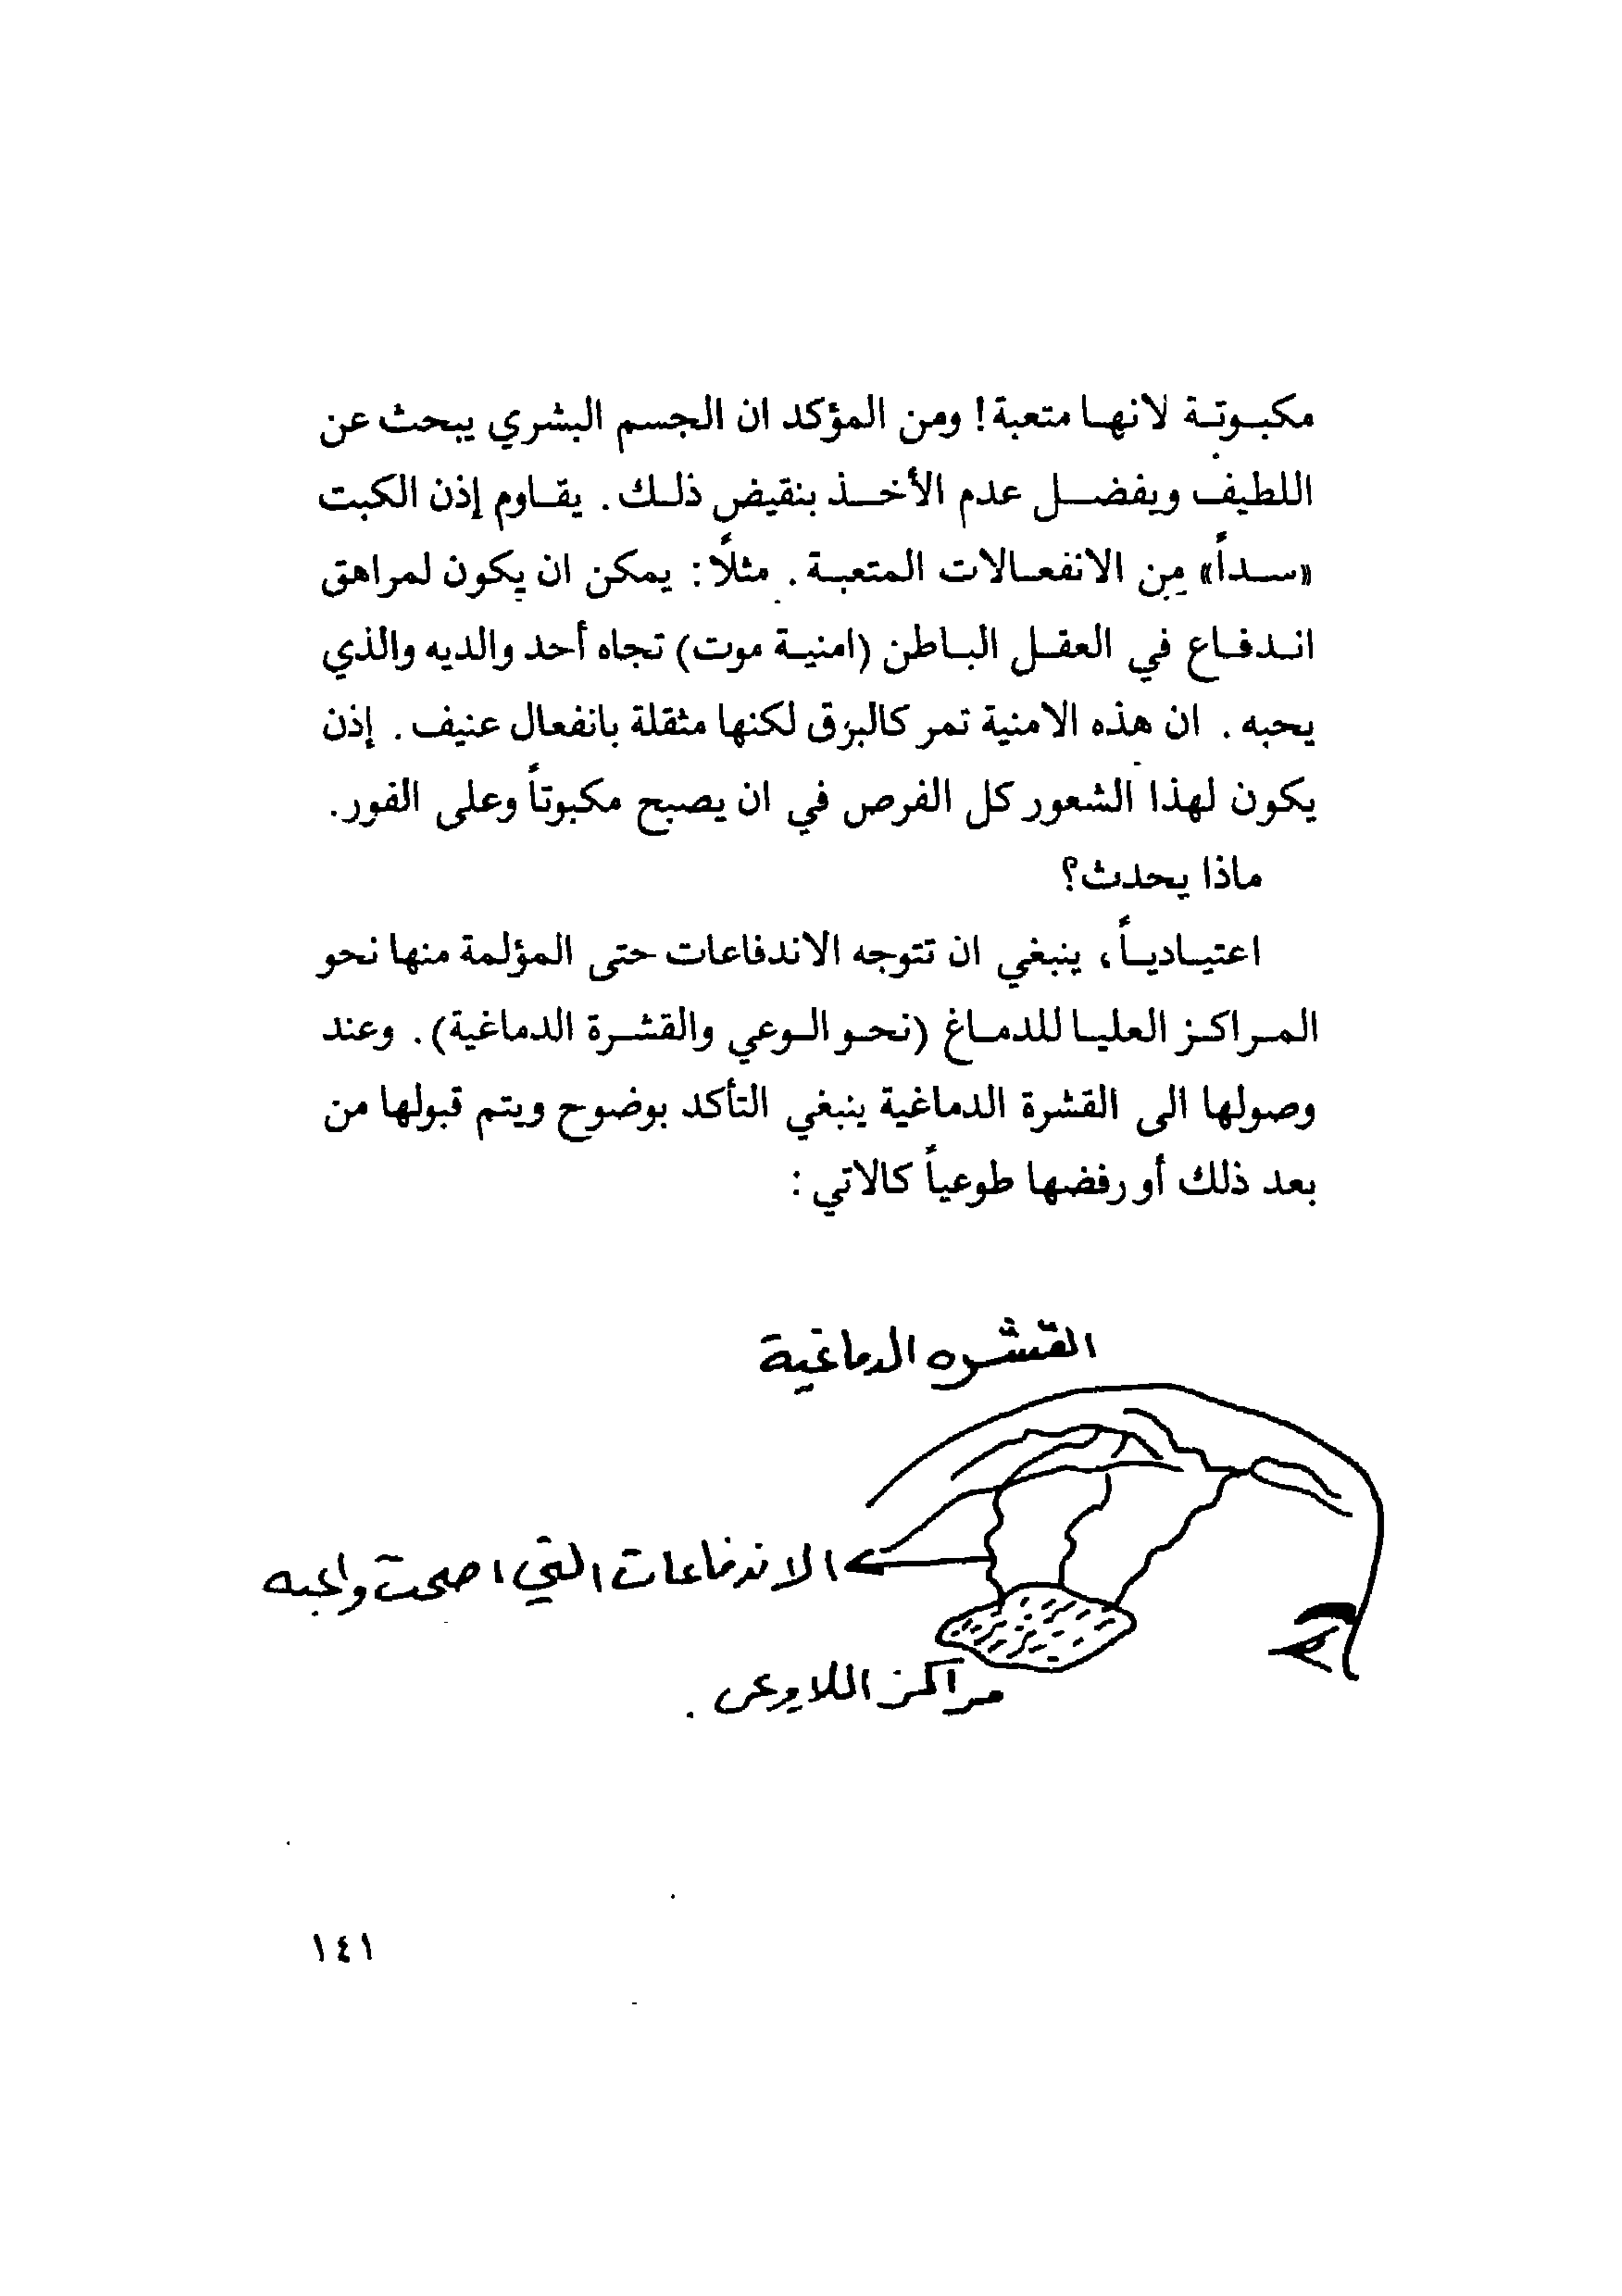 مكبوتة لانها متعبة! ومن المؤكد ان الجسم البشري يبحث عن
اللطيف ويفضل عدم الأخذ بنقيض ذلك. يقاوم إذن الكبت
«سداً» من الانفعالات المتعبة. مثلاً: يمكن ان يكون لمراهق
اندفاع في العقل الباطن (امنية موت) تجاه أحد والديه والذي
يحبه. ان هذه الامنية تمر كالبرق لكنها مثقلة بانفعال عنيف. إذن
يكون لهذا الشعور كل الفرص في ان يصبح مكبوتاً وعلى الفور.
ماذا يحدث؟
اعتيادياً، ينبغي ان تتوجه الاندفاعات حتى المؤلمة منها نحو
المراكز العليا للدماغ (نحو الوعي والقشرة الدماغية). وعند
وصولها الى القشرة الدماغية ينبغي التأكد بوضوح ويتم قبولها من
بعد ذلك أو رفضها طوعياً كالاتي:
القشره الدماغية
الاندفاعات التي اصبحت واعيه
مراكز اللاوعي.
١٤١